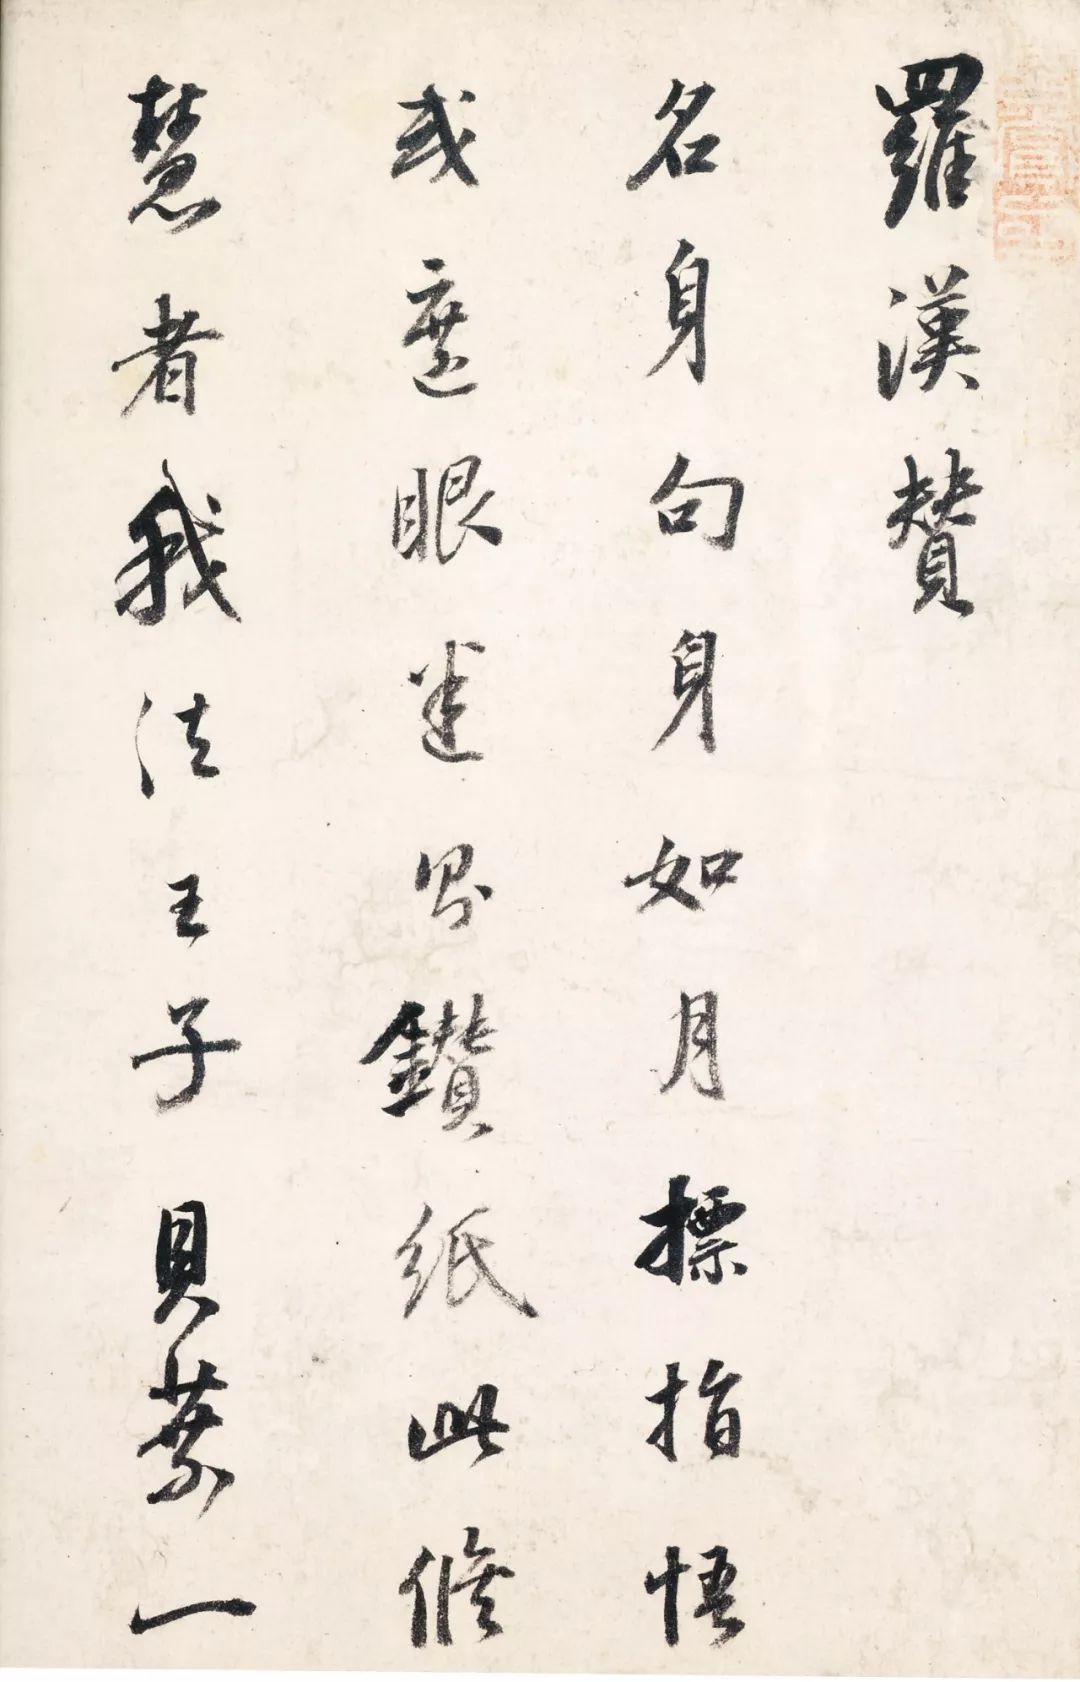 羅漢贊
名身句身如月標指悟
或遮眼迷則鑽紙此修
慧者我法王子貝葉一